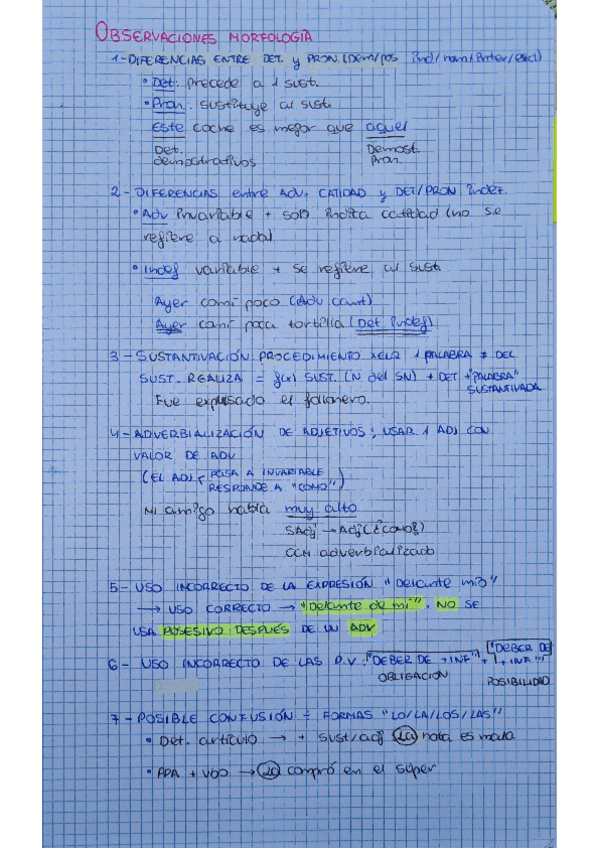 OBSERVACIONES MORFOLOGÍA
1-DIFERENCIAS ENTRE DET. y PRON. (Dem/pos Ind/num/Inter/excl)
• Det. precede a 1 sust.
• Pron. sustituye al sust.
Este coche es mejor que aquel
Det. demostrativos Demost. Pron.
2- DIFERENCIAS entre ADV. CATIDAD y DET/PRON Indef.
• Adv invariable + solo indica catidad (no se
refiere a nada)
• Indef variable + se refiere al sust.
Ayer comí poco (Adv cant)
Ayer comí poca tortilla (Det indef)
3- SUSTANTIVACIÓN: PROCEDIMIENTO XELQ 1 PALABRA ≠ DEL
SUST. REALIZA = f(x) SUST. (N del SN) + DET + "PALABRA"
SUSTANTIVADA
Fue expulsado el follonero.
4- ADVERBIALIZACIÓN DE ADJETIVOS: USAR 1 ADJ CON
VALOR DE ADV
(EL ADJ PASA A INVARIABLE
RESPONDE A "COMO")
Mi amigo habla muy alto
SAdj → Adj (¿CÓMO?)
CCM adverbializado
5- USO INCORRECTO DE LA EXPRESIÓN "Delante mío"
→ USO CORRECTO → "Delante de mí". NO SE
USA POSESIVO DESPUÉS DE UN ADV
6- USO INCORRECTO DE LAS P.V. "DEBER DE + INF" + "DEBER DE
+ INF"
OBLIGACIÓN POSIBILIDAD
7- POSIBLE CONFUSIÓN ÷ FORMAS "LO/LA/LOS/LAS"
• Det. artículo → + sust/adj La nota es mala
• PPA + VBO → Lo compró en el súper